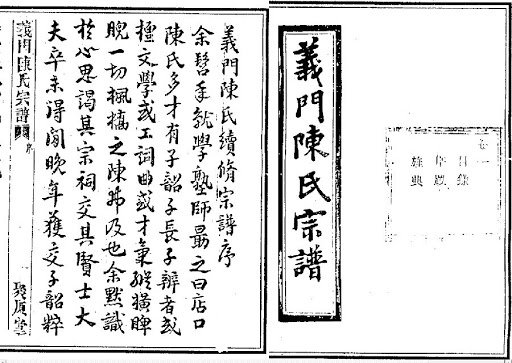 卷一
目錄
序跋
雜典
義門陳氏宗譜
義門陳氏續脩宗譜序
余髫年就學塾師最之曰店口
陳氏多才有子韶子長子辨者或
檀文學或工詞曲或才氣縱橫睥
睨一切楓橋之陳弗及也余默識
於心思謁其宗祠交其賢士大
夫卒未得閒晚年獲交子韶粹
義門陳氏宗譜
序
聚原堂